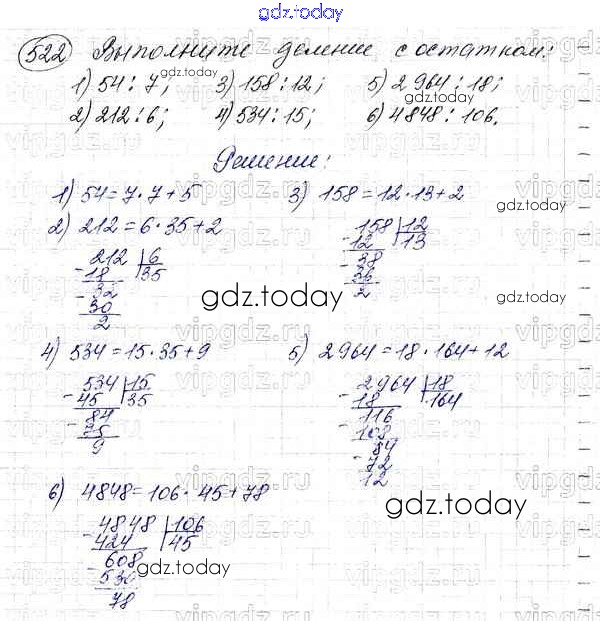 gdz.today
522 Выполните деление с остатком:
1) 54 : 7; 3) 158 : 12; 5) 2964 : 18;
2) 212 : 6; 4) 534 : 15; 6) 4848 : 106.
Решение:
1) 54 = 7 · 7 + 5
3) 158 = 12 · 13 + 2
158 12
- 12 13
- 38
36
2
2) 212 = 6 · 35 + 2
212 6
- 18 35
- 32
30
2
gdz.today
4) 534 = 15 · 35 + 9
534 15
- 45 35
- 84
75
9
5) 2964 = 18 · 164 + 12
2964 18
- 18 164
- 116
108
- 84
72
12
6) 4848 = 106 · 45 + 78
4848 106
- 424 45
- 608
530
78
gdz.today
gdz.today
gdz.today
gdz.today
gdz.today
vipgdz.ru